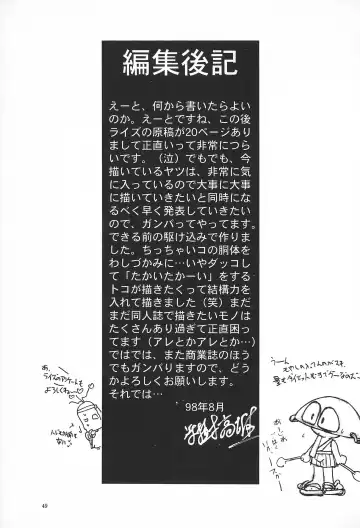 編集後記
えーと、何から書いたらよい
のか。えーとですね、この後
ライズの原稿が20ページあり
まして正直いって非常につら
いです。（泣）でもでも、今
描いているヤツは、非常に気
に入っているので大事に大事
に描いていきたいと同時にな
るべく早く発表していきたい
ので、ガンバってやってます。
できる前の駆け込みで作りま
した。ちっちゃいコの胴体を
わしづかみに…いやダッコし
て「たかいたかーい」をする
トコが描きたくって結構力を
入れて描きました（笑）まだ
まだ同人誌で描きたいモノは
たくさんあり過ぎて正直困っ
てます（アレとかアレとか…）
ではでは、また商業誌のほう
でもガンバリますので、どう
かよろしくお願いします。
それでは…
98年8月
あ、
よろしくねー
うーん
49